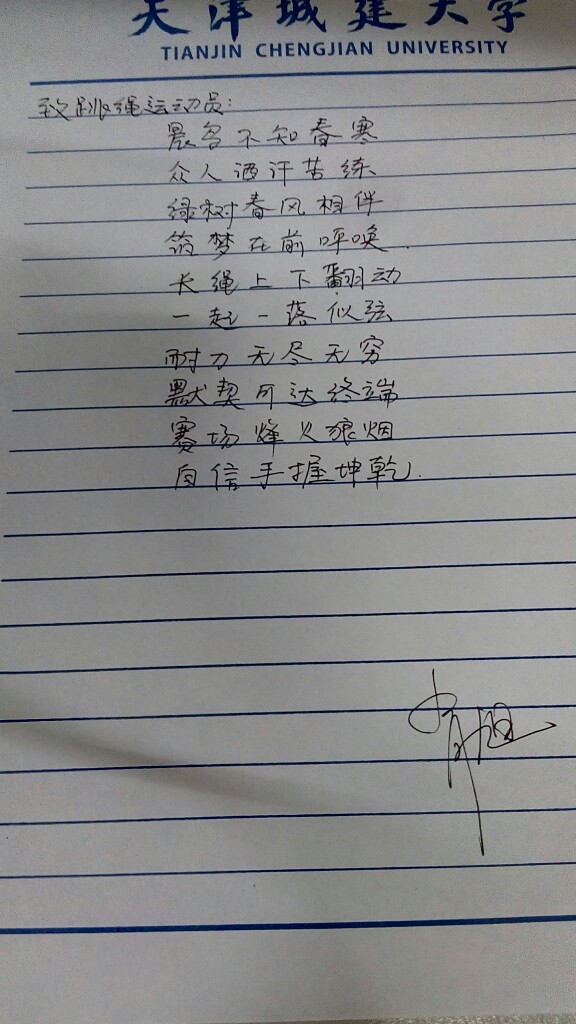 天津城建大学
TIANJIN CHENGJIAN UNIVERSITY
致跳绳运动员:
不知春寒
众人洒汗苦练
绿树春风相伴
筑梦在前呼唤.
长绳上下翻动
一起一落似弦
耐力无尽无穷
默契可达终端
赛场烽火狼烟
自信手握坤乾.